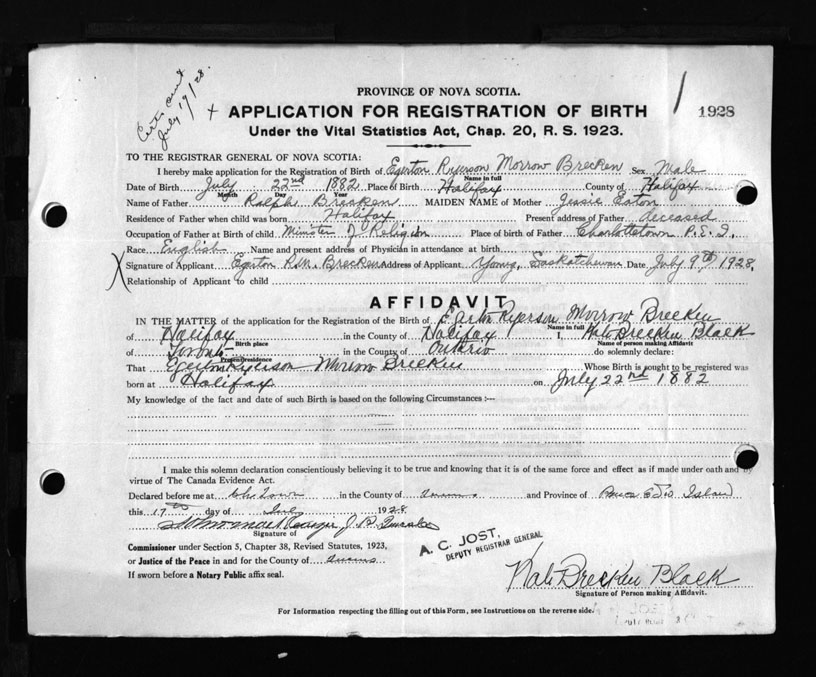 Certs sent
July 19/28
PROVINCE OF NOVA SCOTIA.
+ APPLICATION FOR REGISTRATION OF BIRTH 1928
Under the Vital Statistics Act, Chap. 20, R. S. 1923.
TO THE REGISTRAR GENERAL OF NOVA SCOTIA:
I hereby make application for the Registration of Birth of Egerton Ryerson Morrow Brecken Sex Male
Name in full
Date of Birth July 22nd 1882 Place of Birth Halifax County of Halifax
Month Day Year
Name of Father Ralph Brecken MAIDEN NAME of Mother Jessie Eaton
Residence of Father when child was born Halifax Present address of Father deceased
Occupation of Father at Birth of child Minister of Religion Place of birth of Father Charlottetown P.E.I.
Race English Name and present address of Physician in attendance at birth
X Signature of Applicant Egerton R.M. Brecken Address of Applicant Young, Saskatchewan Date July 9th 1928.
Relationship of Applicant to child
AFFIDAVIT
IN THE MATTER of the application for the Registration of the Birth of Egerton Ryerson Morrow Brecken
Name in full
of Halifax in the County of Halifax I, Kate Brecken Black
Birth place Name of person making Affidavit
of Toronto in the County of Ontario do solemnly declare:
Present residence
That Egerton Ryerson Morrow Brecken Whose Birth is sought to be registered was
born at Halifax on July 22nd 1882
My knowledge of the fact and date of such Birth is based on the following Circumstances :—
I make this solemn declaration conscientiously believing it to be true and knowing that it is of the same force and effect as if made under oath and by
virtue of The Canada Evidence Act.
Declared before me at Ch. Town in the County of Queens and Province of Prince Edward Island
this 17th day of July 1928
J. P.
Signature of
Commissioner under Section 5, Chapter 38, Revised Statutes, 1923,
or Justice of the Peace in and for the County of Queens
If sworn before a Notary Public affix seal.
A. C. JOST,
DEPUTY REGISTRAR GENERAL
Kate Brecken Black
Signature of Person making Affidavit.
For Information respecting the filling out of this Form, see Instructions on the reverse side.